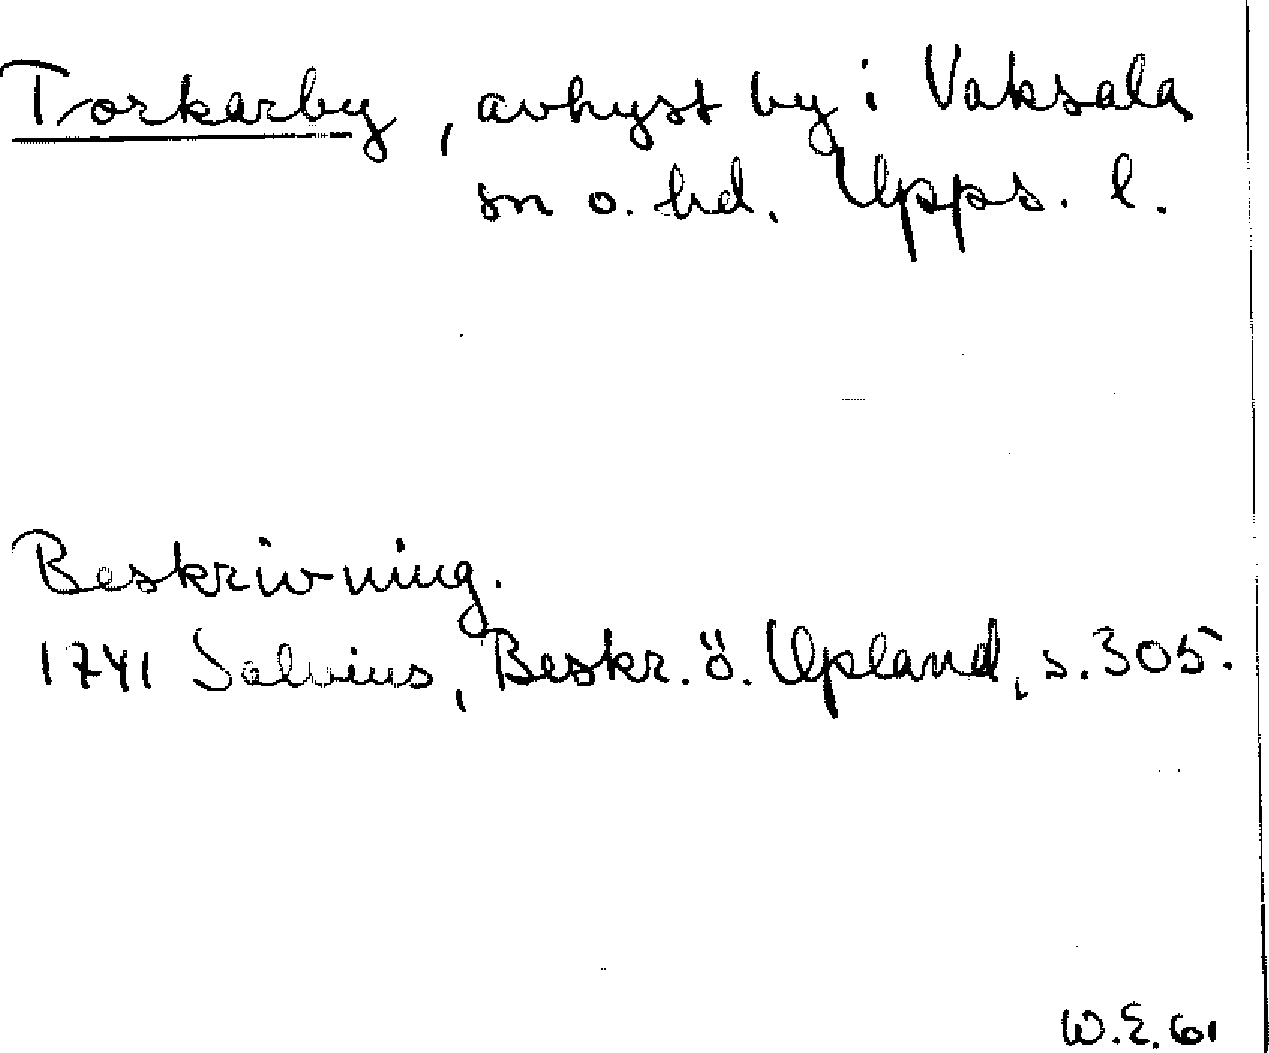 Torkarby, avhyst by i Vaksala
sn o. hd. Upps. l.
Beskrivning.
1741 Salvius, Beskr. ö. Upland, s. 305.
W.E. 61